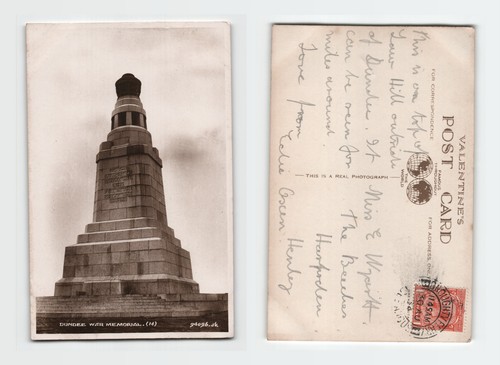 DUNDEE WAR MEMORIAL. (14)
94096. JV
VALENTINE'S
POST CARD
FOR CORRESPONDENCE
FOR ADDRESS ONLY
FAMOUS THROUGHOUT THE WORLD
THIS IS A REAL PHOTOGRAPH
This is on top of
Law Hill outside
of Dundee. It
can be seen for
miles around.
Love from
Miss E Wyatt
The Beeches
Harpsden
Henley
Oxon